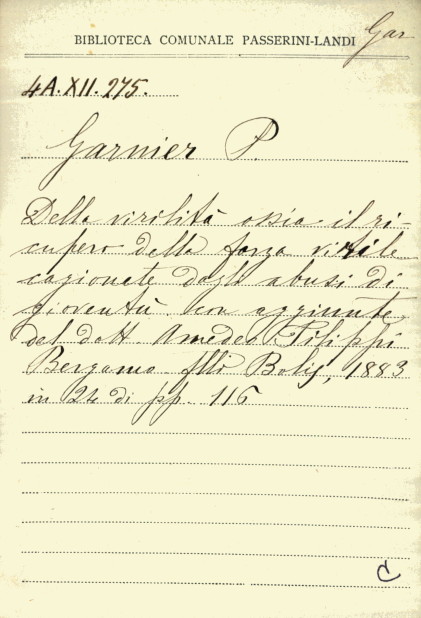 BIBLIOTECA COMUNALE PASSERINI-LANDI
Gar
4A.XII.275.
Garnier P.
Della virilità ossia il ri-
cupero della forza virile
cazionate dagli abusi di
gioventù con aggiunte
dal dott Amedeo Filippi
Bergamo flli Bolis, 1883
in 24 di pp. 116
C